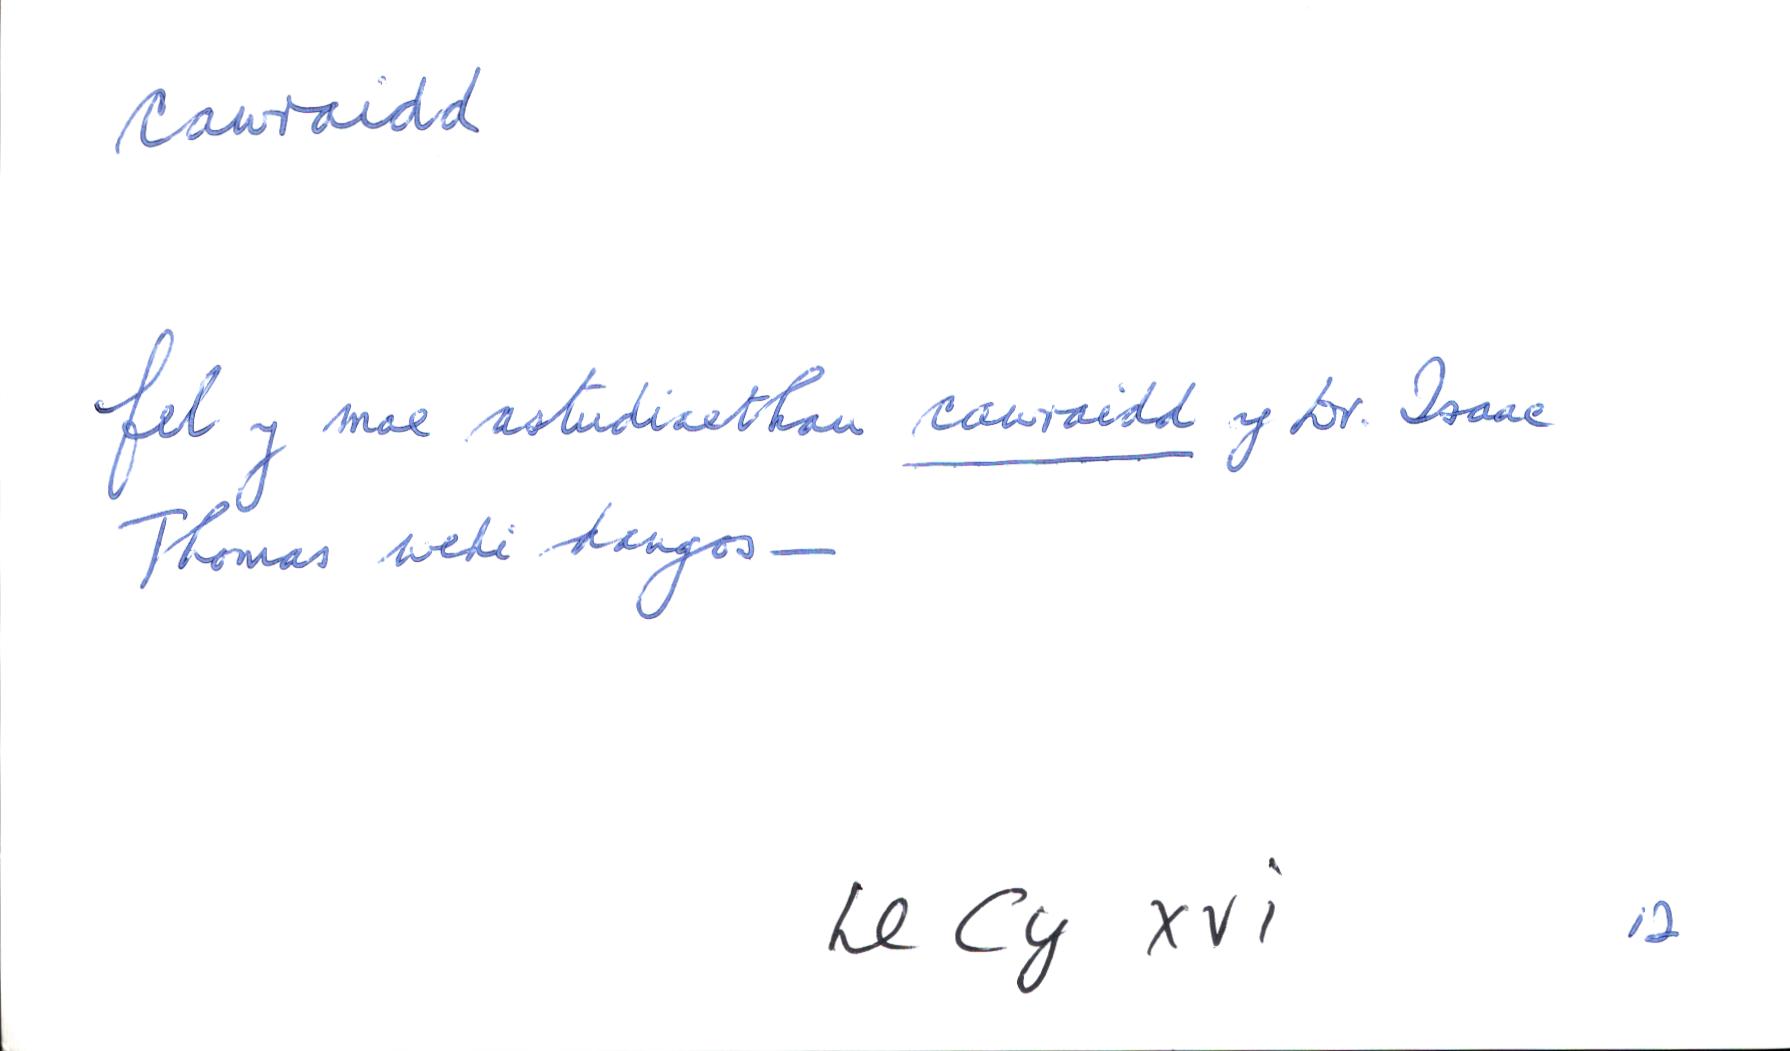 cawraidd
fel y mae astudiaethau cawraidd y Dr. Isaac
Thomas wedi dangos —
Ll Cy xvi 12